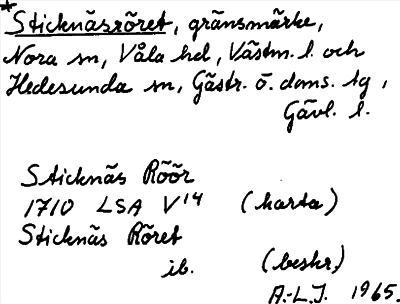 *Sticknäsröret, gränsmärke,
Nora sn, Våla hd, Västm. l. och
Hedesunda sn, Gästr. ö. doms. tg,
Gävl. l.
Sticknäs Röör
1710 LSA V14 (karta)
Sticknäs Röret
ib. (beskr.)
A.-L.J. 1965.